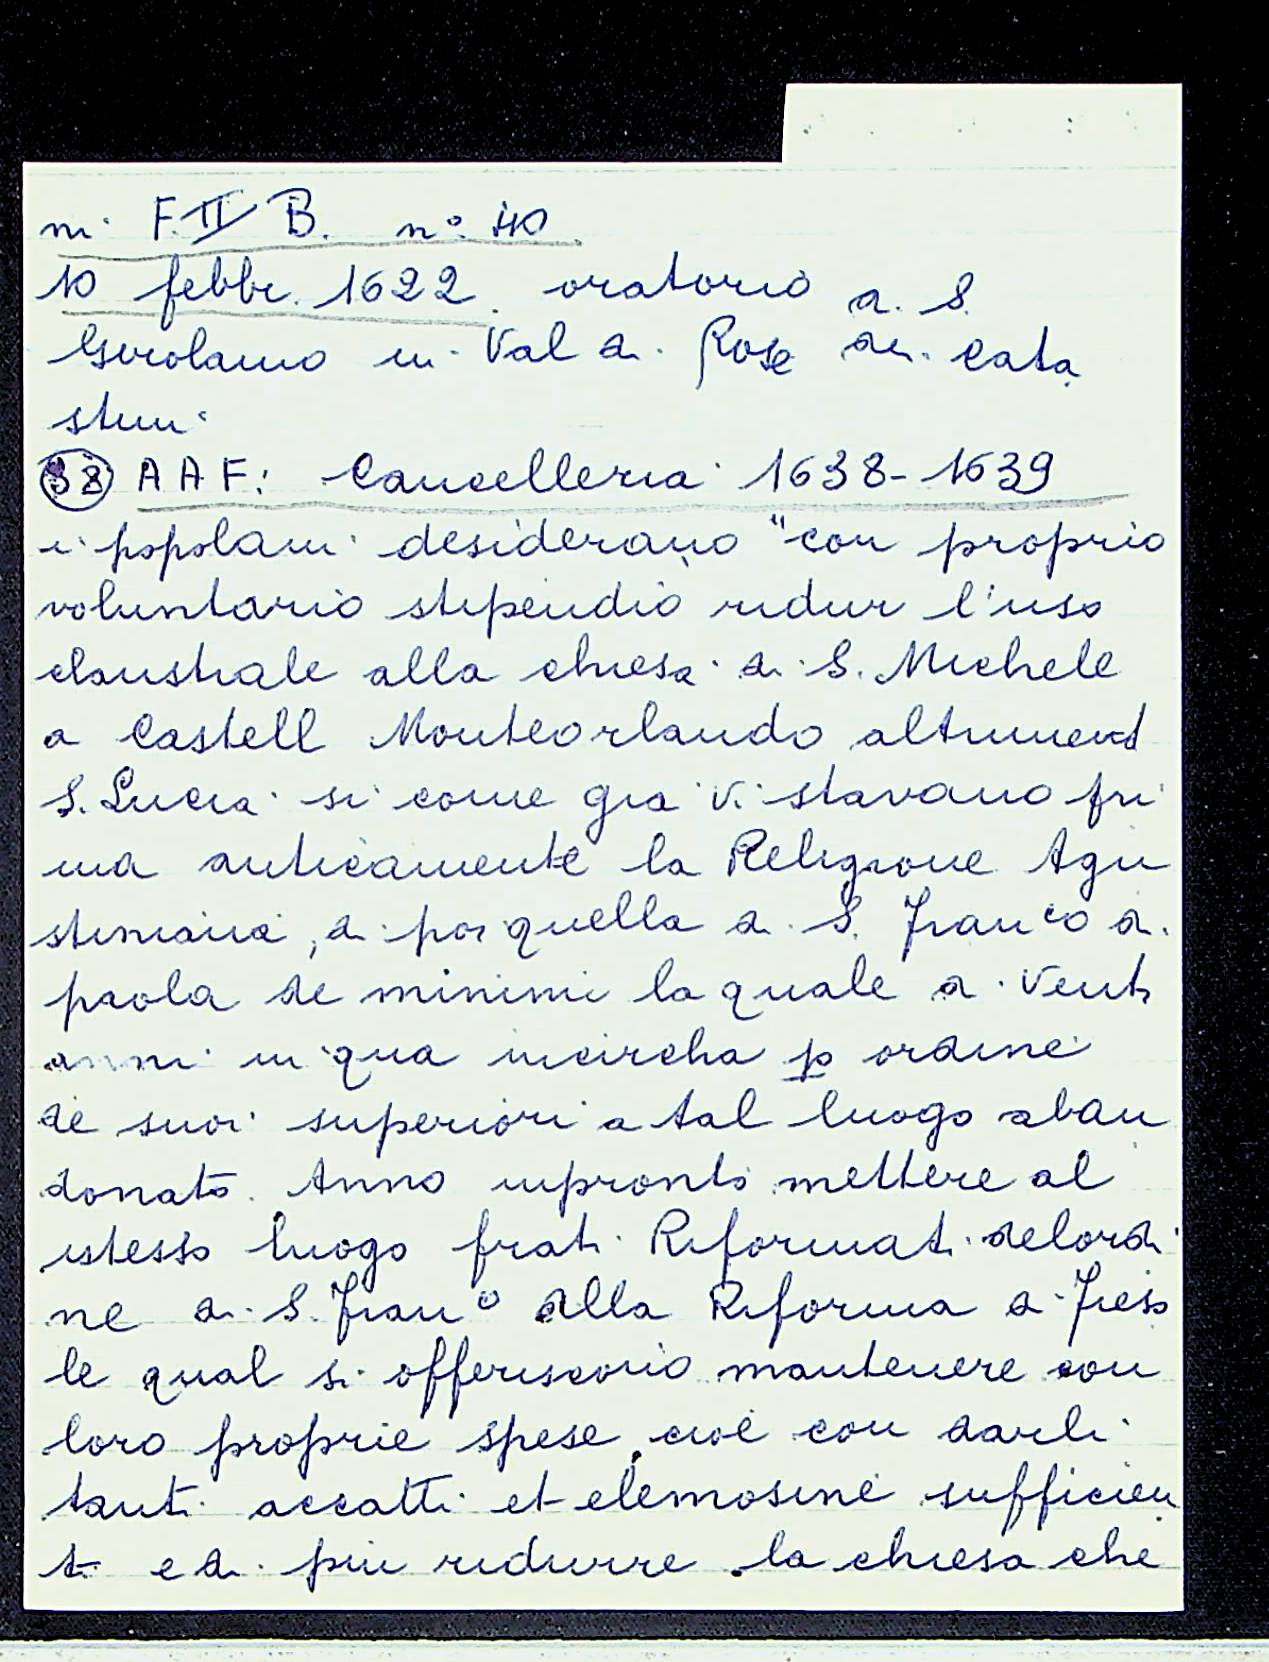 in F. II B. n° 40
10 febbr. 1622. oratorio di S.
Girolamo in Val di Rose dei Cata
stini
38 AAF: Cancelleria 1638-1639
i popolani desiderano "con proprio
voluntario stipendio ridur l'uso
claustrale alla chiesa di S. Michele
a Castell Monteorlando altriment
S. Lucia si come gia vi stavano pri
ma anticamente la Religione Agu
stiniana, di poi quella di S. Franco di
paola de minimi la quale di venti
anni in qua incircha p ordine
de suoi superiori a tal luogo aban
donato. Anno inpronti mettere al
istesso luogo frati Riformati delordi
ne di S. Franco alla Riforma di Fieso
le qual si offeriscono mantenere con
loro proprie spese, cioè con darli
tanti accatti et elemosine sufficien
ti e di piu ridurre la chiesa che